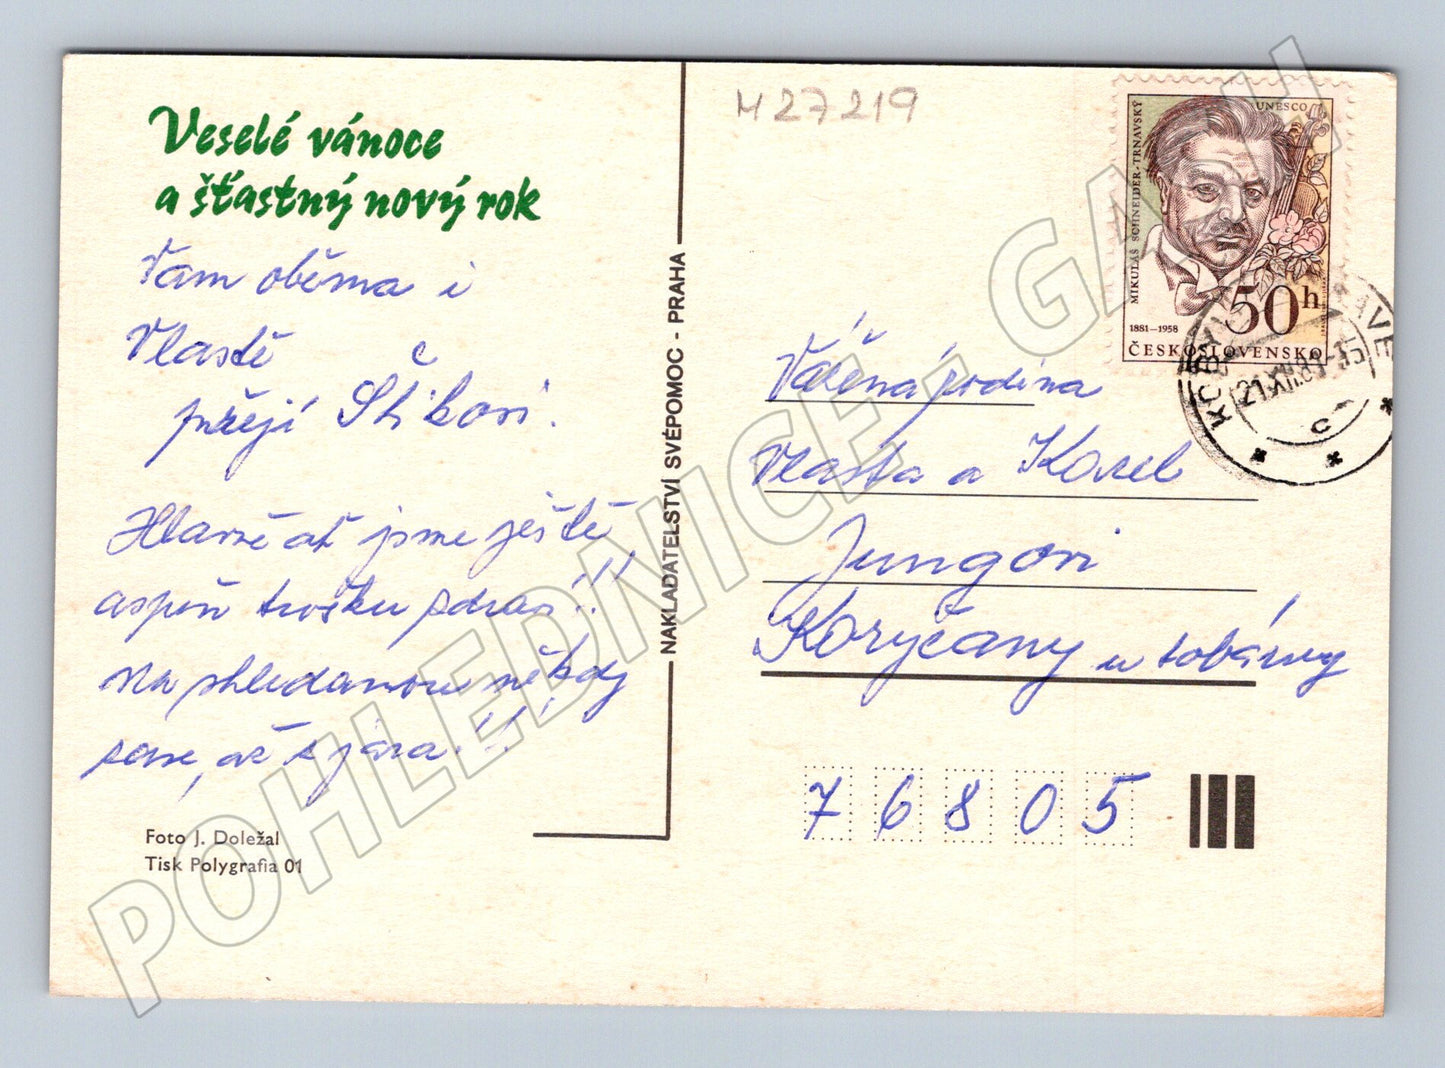 Veselé vánoce
a šťastný nový rok
Vam oběma i
Vlastě
přejí Štikovi.
Hlavně ať jsme ještě
aspoň trošku zdraví!!!
Na shledanou někdy
zase, až z jára!!!
Foto J. Doležal
Tisk Polygrafia 01
NAKLADATELSTVÍ SVÉPOMOC - PRAHA
M27219
MIKULÁŠ SCHNEIDER-TRNAVSKÝ
UNESCO
50h
1881–1958
ČESKOSLOVENSKO
21.XII.
Vážená rodina
Vlasta a Karel
Jungovi
Koryčany u továrny
76805
POHLEDNICE - GASH